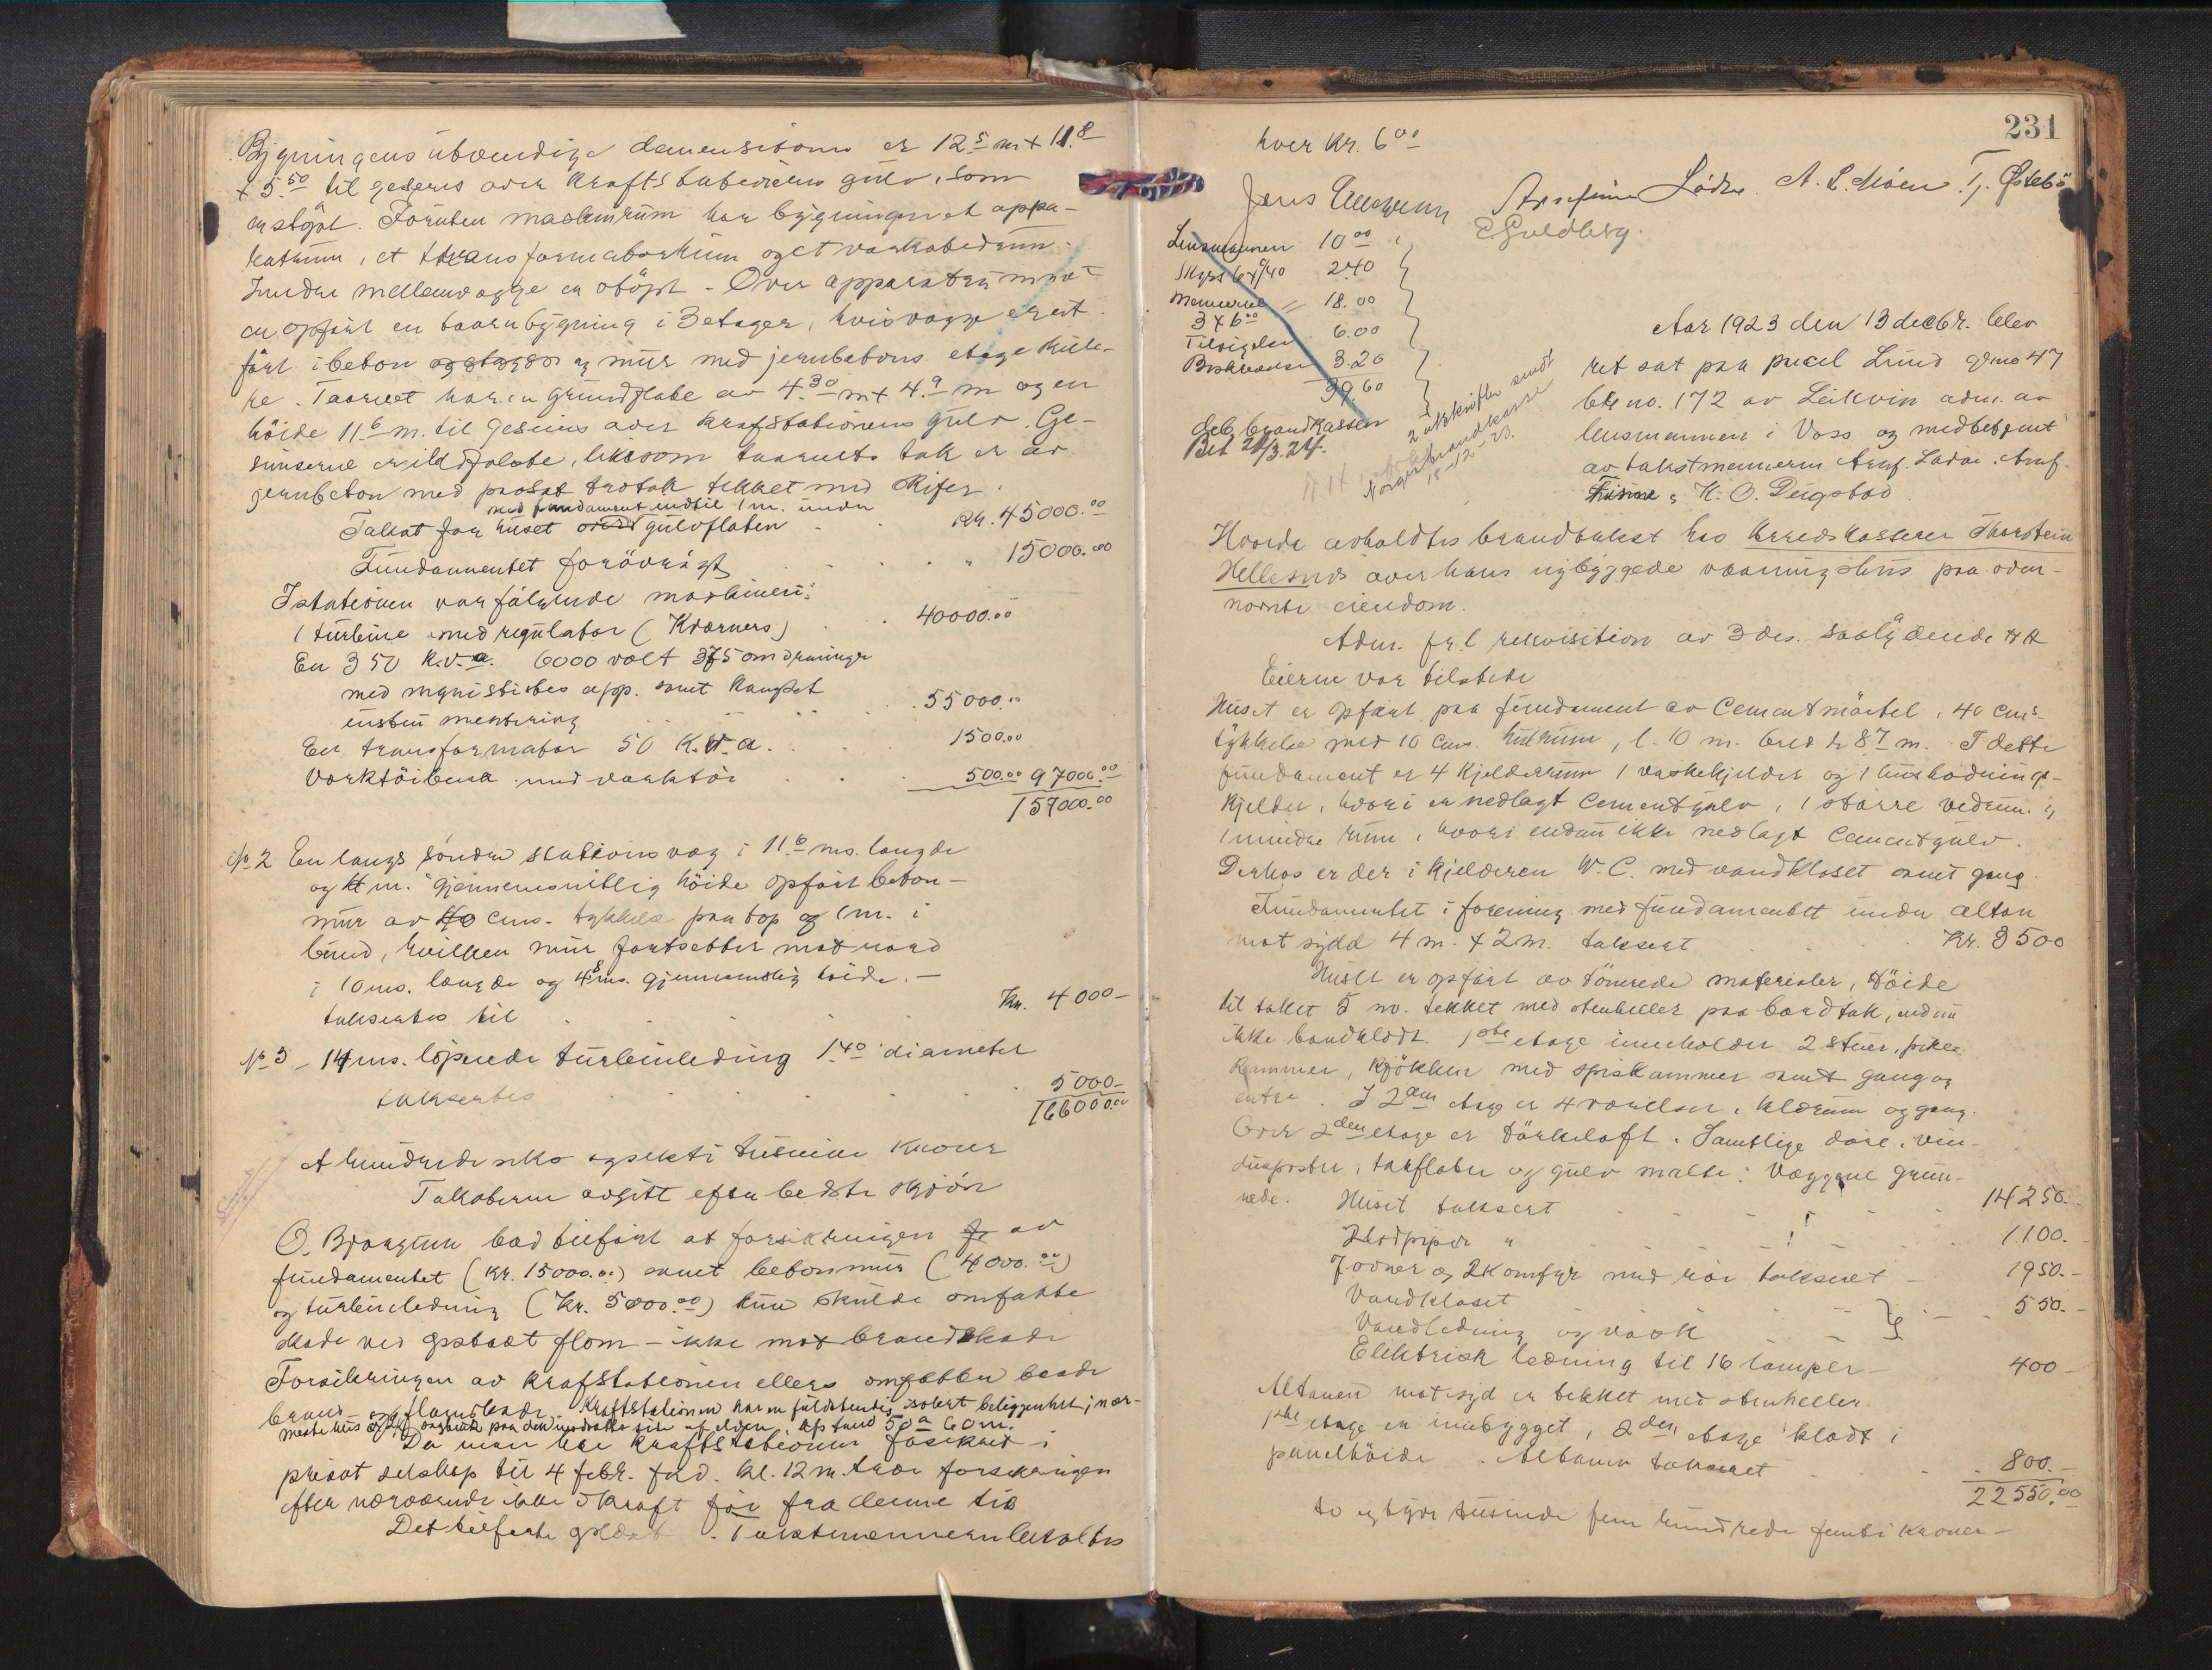 Bygningens utvendige demensioner er 12.5 m x 11.8
x 5.50 til gesims over Kraftstationens gulv, som
er støpt. Foruten maskinrum har bygningen et appa-
ratrum, et transformatorrum og et verkstedrum.
Indre mellemvægge er støpt - Over apparatrummet
er opført en taarnbygning i 3 etager, hvis vægge er ut-
ført i beton og mur med jernbetons etage skille-
re. Taarnet har en grundflate av 4.30 m x 4.9 m og en
høide 11.6 m. til gesims over kraftstationens gulv. Ge-
simserne er ildsfaste, likesom taarnets tak er av
jernbeton med paasat tretak tekket med skifer.
med fundament indtil 1 m. under
Takst for huset gulvflaten . . Kr. 45000.00
Fundamentet forøvrigt . . . „ 15000.00
I stationen var følgende maskineri:
1 turbine med regulator (Kværners) . . 40000.00
En 350 k.v.a. 6000 volt 375 omdreininger
med app. samt komplet
instrumentering . . 55000.00
En transformator 50 K.V.a. . . 1500.00
Verktøibenk med verktøi . . 500.00 97000.00
157000.00
No 2 En langs søndre stations væg i 11.6 ms. længde
og 4 m. gjennemsnitlig høide opført beton-
mur av 40 cms. tykkelse paa top og 1 m. i
bund, hvilken mur fortsetter mot nord
i 10 ms. længde og 4 ms. gjennemsnitlig høide. -
takseres til . . . . Kr. 4000 -
No 3 - 14 ms. løpende turbinledning 1.40 diameter
takseres . . . . 5000 -
166000.00
Et hundrede seks og seksti tusinde kroner
Taksterne avgitt efter bedste skjøn
O. Bjørgum bad tilført at forsikringen av
fundamentet (Kr. 15000.00) samt betonmur (4000.00)
og turbinledning (Kr. 5000.00) kun skulde omfatte
skade ved flom - ikke mot brandskade
Forsikringen av kraftstationen ellers omfatter baade
brand- og flomskade. Kraftstationen har en fuldstendig isolert beliggenhet; nær-
meste hus paa den modsatte side av elven, avstand 50 a 60 m.
Da man har kraftstationen forsikret i
privat selskap til 4 febr. kl. 12 m. træder forsikringen
efter nærværende ikke i kraft før fra denne tid
Det tilførte godkjent. Takstmennerne betaltes
231
hver Kr. 6.00
Jens Arnfinn Lødve. A. L. Moen. T. Østebø
E. Guldberg.
Lensmannen 10.00
Skyss 6 x 0/40 2.40
Mennerne 18.00
3 x 6.00
Tilsigelse 6.00
Beskrivelse 3.20
39.60
Deb. brandkassen
Bet 24/3.24.
2 utskrifter sendt
Norges brandkasse
15-12-23.
Aar 1923 den 13 decbr. blev
ret sat paa parcel Lund gdno 47
brno. 172 av Leikvin adm. av
lensmannen i Voss og medbetjent
av takstmennerne Arnf. Lødve. Arnf.
Finne og K. O. Dugstad.
Hvorda avholdtes brandtakst hos Herredskasserer Thorstein
Hellesnes over hans nybyggede vaaningshus paa oven-
nævnte eiendom.
Adm. frl. rekvisition av 3 ds. saalydende
Eieren var tilstede
Huset er opført paa fundament av Cementmørtel, 40 cms.
tykkelse med 10 cms. hulrum, l. 10 m. bredde 8.7 m. I dette
fundament er 4 kjelderrum 1 vaskekjelder og 1 husholdnings-
kjelder, hvori er nedlagt Cementgulv, 1 større vedrum og
1 mindre rum, hvori endnu ikke nedlagt Cementgulv.
Derhos er der i kjelderen W.C. med vandkloset samt gang.
Fundamentet i forening med fundamentet under altan
mot sydd 4 m. x 2 m. taksert . . Kr. 3500
Huset er opført av tømrede materialer, Høide
til taket 5 m. tekket med stenheller paa bordtak, endnu
ikke bordklædt. 1ste etage inneholder 2 stuer, pike-
kammer, kjøkken med spiskammer samt gang og
entre. I 2den etage er 4 værelser, kldrum og gang.
Over 2den etage er tørkeloft. Samtlige døre, vin-
duesposter, takflater og gulv malte: Væggene grun-
nede. Huset taksert - - - 14250.-
2 Rodpiper „ - - 1100.-
7 ovner og 2 Komfyr med rør taksert - 1950.-
Vandkloset
Vandledning og vask } - 550.-
Elektrisk ledning til 16 lamper - 400 -
Altanen mot syd er tekket med stenheller.
1ste etage er innbygget, 2den etage klædt i
panelhøide. Altanen taksert . . 800.-
22550.00
to og tyve tusinde fem hundrede femti kroner -